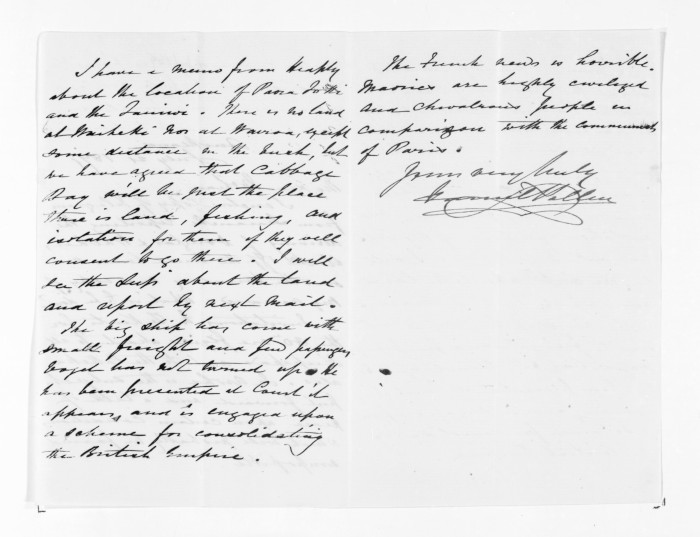 I have a memo from Heaphy
about the location of Paora Toki
and the Tauiwi. There is no land
at Waiheke nor at Wairoa, except
some distance in the bush, but
we have agreed that Cabbage
Bay will be just the place
there is land, fishing, and
isolation for them if they will
consent to go there. I will
see the Supt about the land
and report by next mail.
The big ship has come with
small freight and few passengers
Vogel has not turned up. He
has been presented at Court it
appears, and is engaged upon
a scheme for consolidating
the British Empire.
The French news is horrible.
Maories are highly civilized
and chivalrous people in
comparizon with the communists
of Paris.
Yours very truly